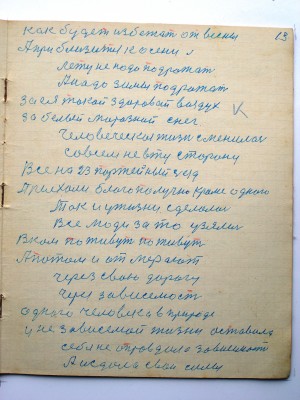 как будет избежат от весны 13
А приблизится к осени и
лету не подо подрожат
А надо зимы подрожат
за ся такой здоровай воздух
за белый марозной снег
Человеческая жизн сменилас
совсем не в ту сторону
Все на 23 партейный съезд
Приехали благополучно кроме одного
Так и ужизни сделалос
Все люди за то узелис
В ком поживут поживут
А потом и от мерают
через свою дорогу
Через зависемост
одного человека в природе
и не зависемой жизни оставила
себя не оправдила зависемост
А издала свои силы